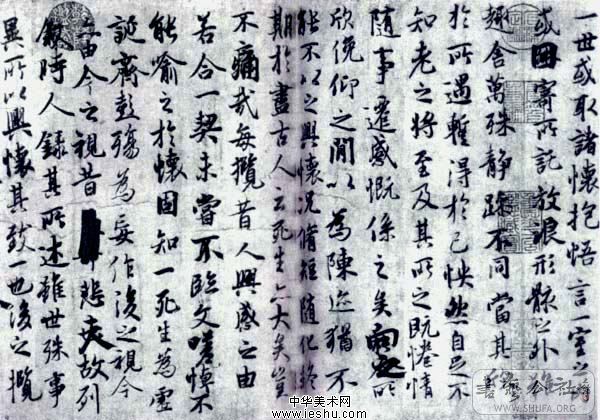 一世或取諸懷抱悟言一室之
或因寄所託放浪形骸之外
趣舍萬殊靜躁不同當其
於所遇蹔得於己怏然自足不
知老之將至及其所之既惓情
隨事遷感慨係之矣向之所
欣俛仰之閒以為陳迹猶不
能不以之興懷況脩短隨化終
期於盡古人云死生亦大矣豈
不痛哉每攬昔人興感之由
若合一契未嘗不臨文嗟悼不
能喻之於懷固知一死生為虛
誕齊彭殤為妄作後之視今
亦由今之視昔悲夫故列
敘時人錄其所述雖世殊事
異所以興懷其致一也後之攬
中华美术网
www.ieshu.com
WWW.SHUFA.ORG